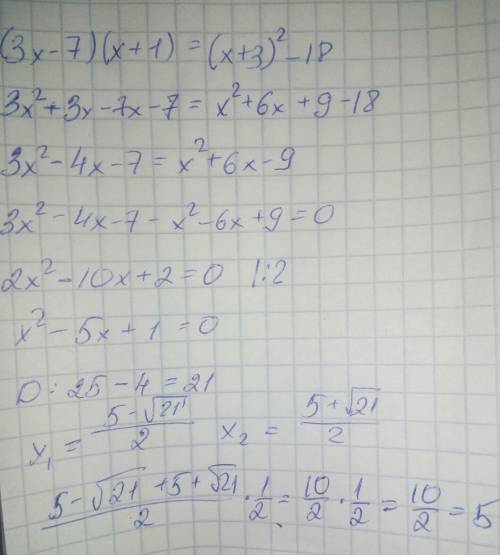 (3x-7)(x+1) = (x+3)²-18
3x²+3x-7x-7 = x²+6x+9-18
3x²-4x-7 = x²+6x-9
3x²-4x-7-x²-6x+9=0
2x²-10x+2=0 |:2
x²-5x+1=0
D: 25-4=21
x₁ = (5-√21)/2 x₂ = (5+√21)/2
(5-√21+5+√21)/2 · 1/2 = 10/2 · 1/2 = 10/2 = 5